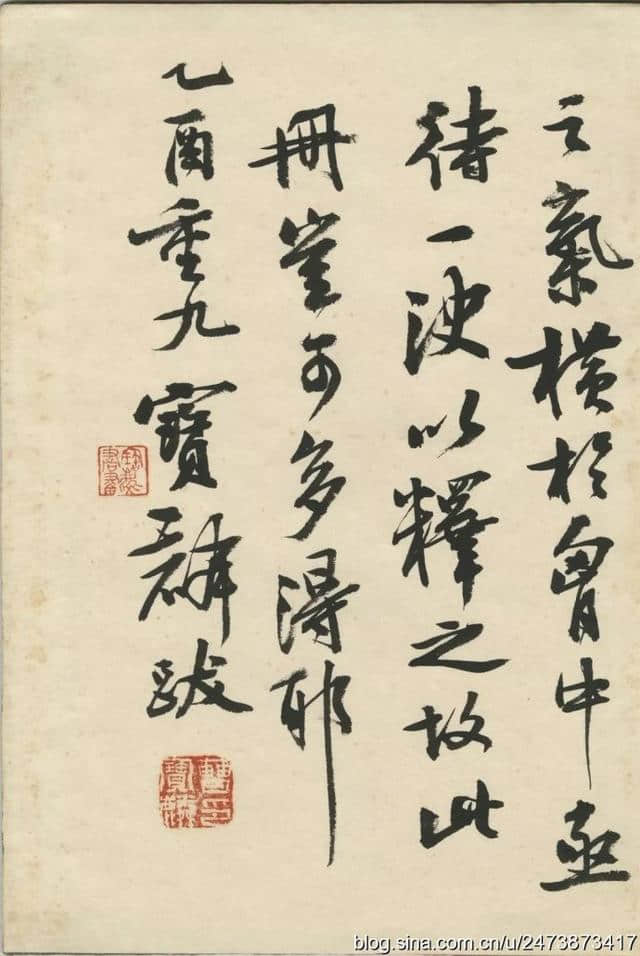 之氣橫於胷中亟
待一洩以釋之故此
冊豈可多得耶
乙酉重九寶麟跋
曹寶麟印
blog.sina.com.cn/u/2473873417